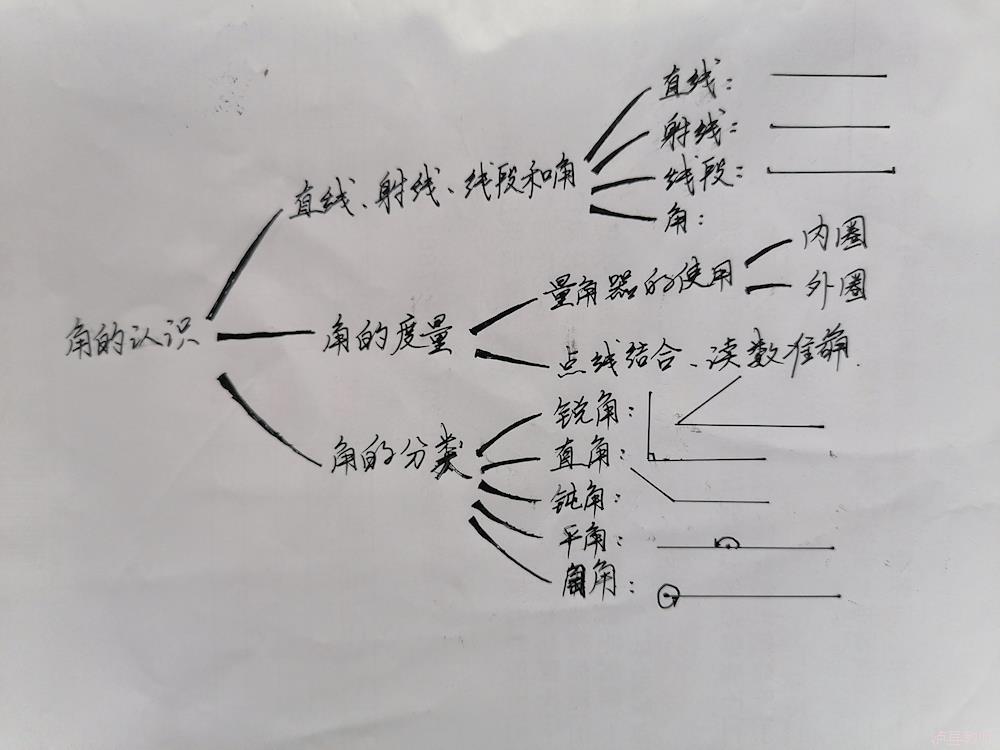 直线：
射线：
直线、射线、线段和角
线段：
角：
内圈
量角器的使用
外圈
角的认识
角的度量
点线结合、读数准确.
锐角：
角的分类
直角：
钝角：
平角：
周角：